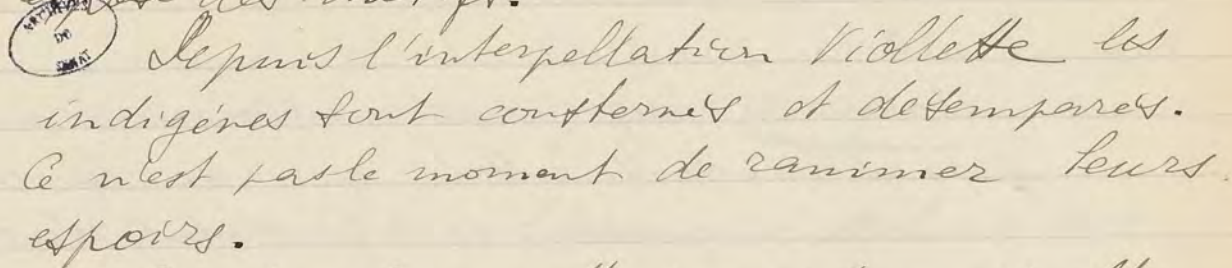 ARCHIVES DU SENAT
Depuis l'interpellation Viollette les
indigénes sont consternés et desemparés.
Ce n'est pas le moment de ranimer leurs
espoirs.